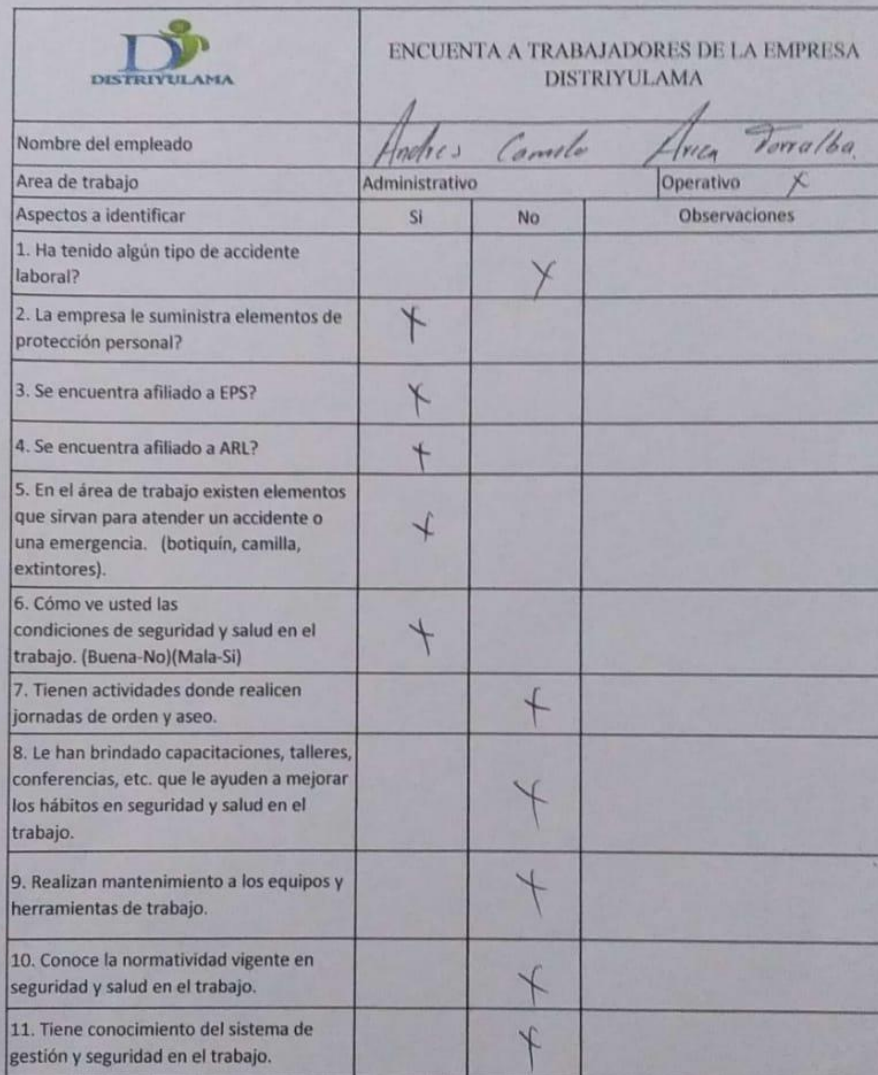 DISTRIYULAMA
ENCUENTA A TRABAJADORES DE LA EMPRESA
DISTRIYULAMA
Nombre del empleado Andres Camilo Torralba
Area de trabajo Administrativo Operativo X
Aspectos a identificar Si No Observaciones
1. Ha tenido algún tipo de accidente
laboral? X
2. La empresa le suministra elementos de
protección personal? X
3. Se encuentra afiliado a EPS? X
4. Se encuentra afiliado a ARL? X
5. En el área de trabajo existen elementos
que sirvan para atender un accidente o
una emergencia. (botiquín, camilla, X
extintores).
6. Cómo ve usted las
condiciones de seguridad y salud en el X
trabajo. (Buena-No)(Mala-Si)
7. Tienen actividades donde realicen
jornadas de orden y aseo. X
8. Le han brindado capacitaciones, talleres,
conferencias, etc. que le ayuden a mejorar
los hábitos en seguridad y salud en el X
trabajo.
9. Realizan mantenimiento a los equipos y X
herramientas de trabajo.
10. Conoce la normatividad vigente en
seguridad y salud en el trabajo. X
11. Tiene conocimiento del sistema de
gestión y seguridad en el trabajo. X